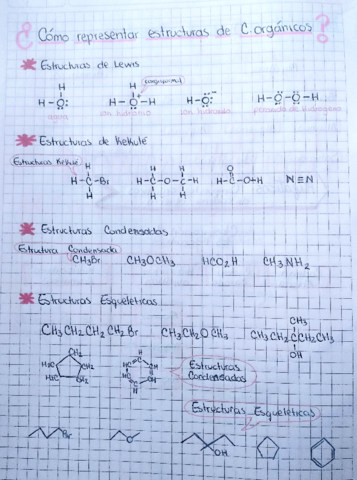 ¿Cómo representar estructuras de C. orgánicos?
Estructuras de Lewis
H
H-O:
agua
H
H-O-H
ion hidronio
H-O:⁻
ion hidróxido
H-O-O-H
peróxido de hidrógeno
Estructuras de Kekulé
Estructuras Kekulé
H
H-C-Br
H
H H
H-C-O-C-H
H H
O
H-C-O-H
N≡N
Estructuras Condensadas
Estructura Condensada
CH3Br CH3OCH3 HCO2H CH3NH2
Estructuras Esqueléticas
CH3
CH3CH2CH2CH2Br CH3CH2OCH3 CH3CH2CCH2CH3
OH
CH2
H2C CH2
H2C CH2
H
HC CH
HC CH
C
H
Estructuras
Condensadas
Estructuras Esqueléticas
Br O OH